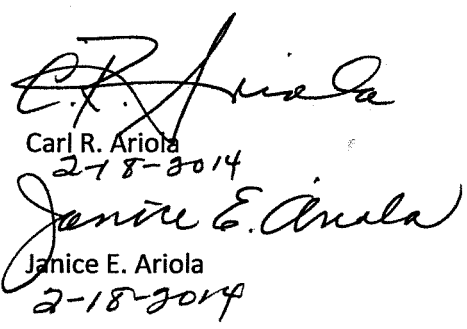 C.R. Ariola
Carl R. Ariola
2-18-2014
Janice E. Ariola
Janice E. Ariola
2-18-2014